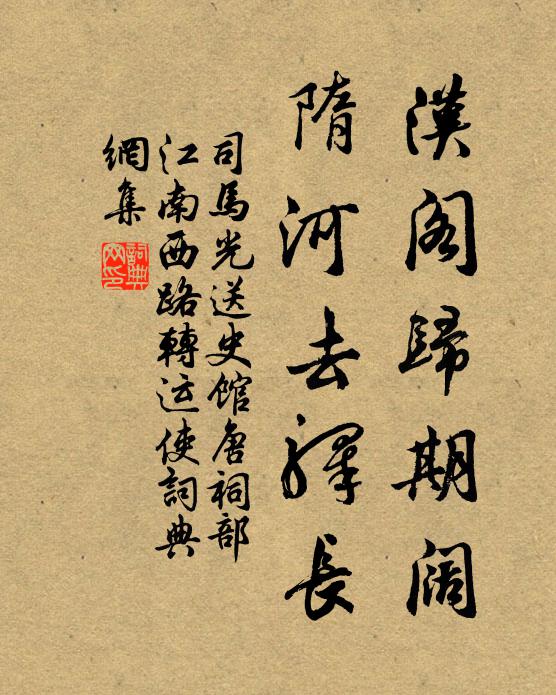 漢閣歸期闊
隋河去驛長
司馬光送史館唐祠部
江南西路轉运使詞典
網集
詞典
网印